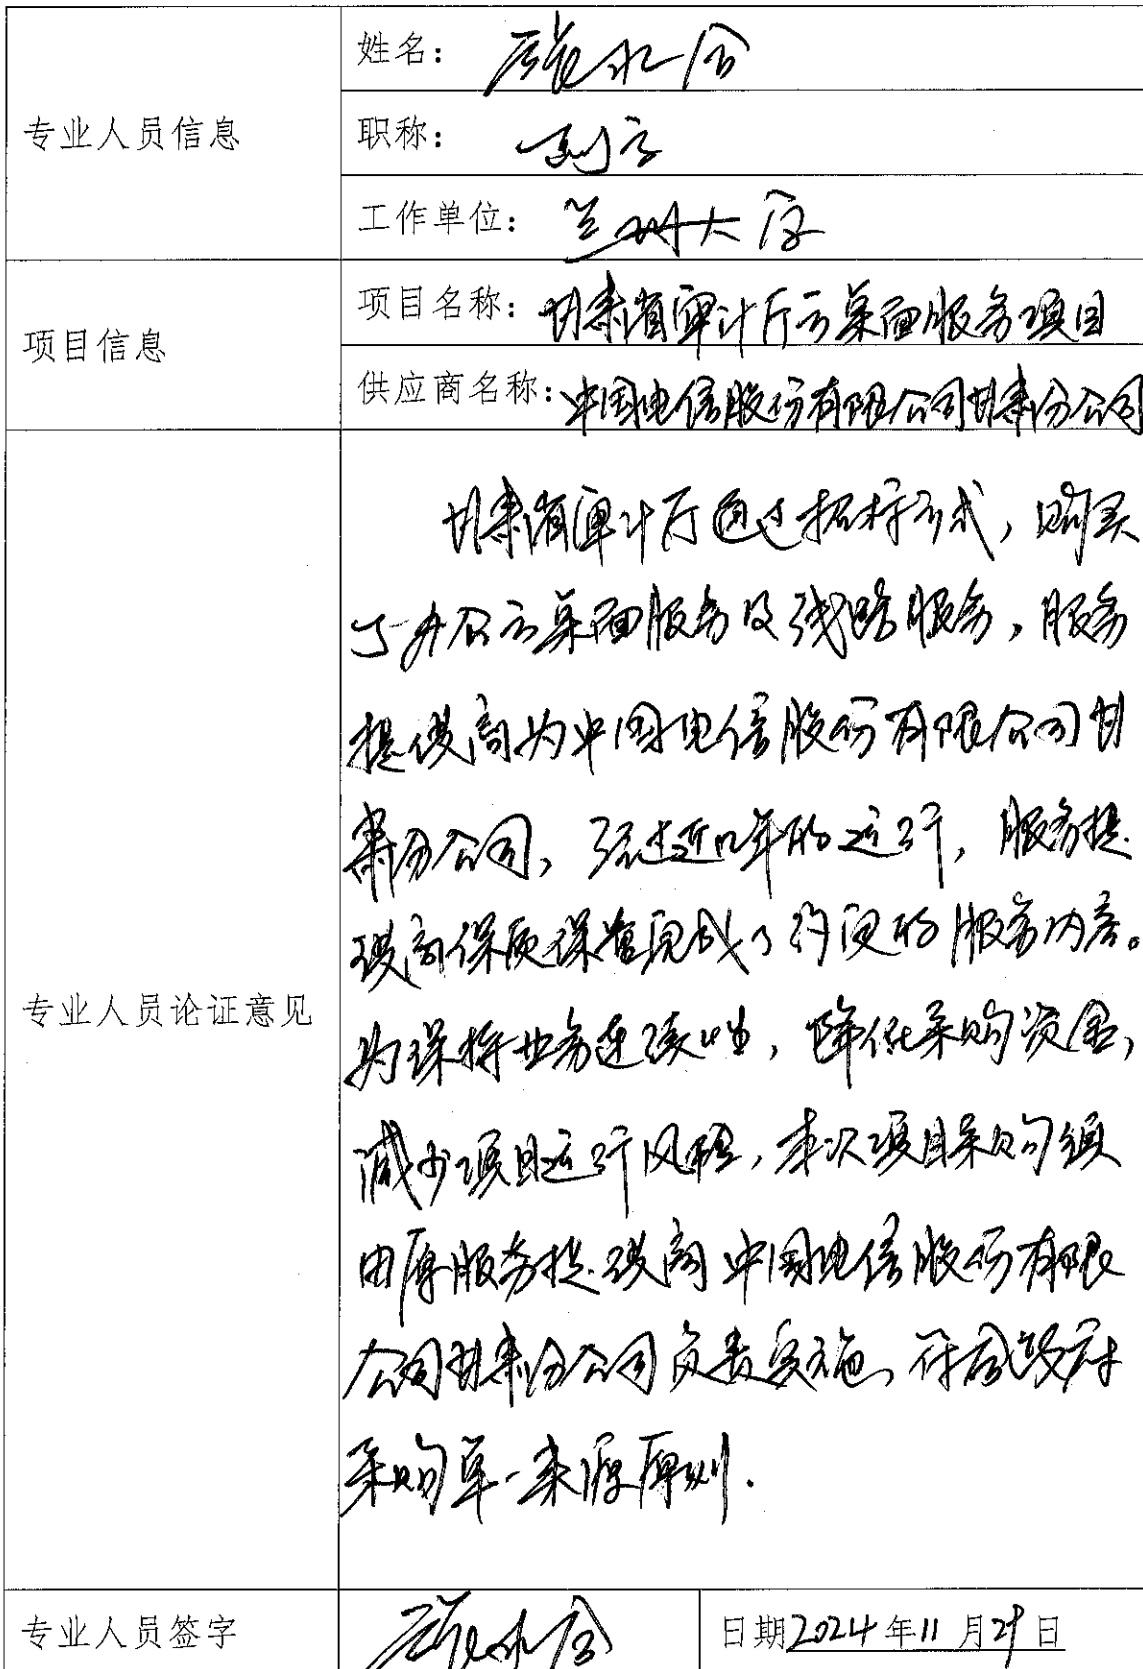 姓名：
专业人员信息
职称：
工作单位：兰州大学
项目信息
项目名称：甘肃省审计厅云桌面服务项目
供应商名称：中国电信股份有限公司甘肃分公司
专业人员论证意见
甘肃省审计厅通过招标方式，购买
了办公云桌面服务及线路服务，服务
提供商为中国电信股份有限公司甘
肃分公司，经过近四年的运行，服务提
供商保质保量完成了约定的服务内容。
为保持业务连续性，降低采购资金，
减少项目运行风险，本次项目采购须
由原服务提供商中国电信股份有限
公司甘肃分公司负责实施，符合政府
采购单一来源原则.
专业人员签字
日期2024年11月29日